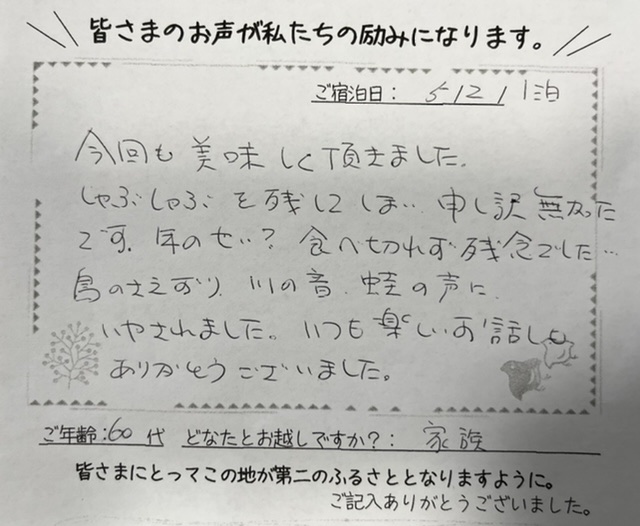 皆さまのお声が私たちの励みになります。
ご宿泊日: 5/21 1泊
今回も美味しく頂きました。
しゃぶしゃぶを残してしまい… 申し訳無かった
です。年のせい? 食べ切れず残念でした…
鳥のさえずり、川の音、蛙の声に、
いやされました。いつも楽しいお話しも
ありがとうございました。
ご年齢:60代 どなたとお越しですか?: 家族
皆さまにとってこの地が第二のふるさととなりますように。
ご記入ありがとうございました。